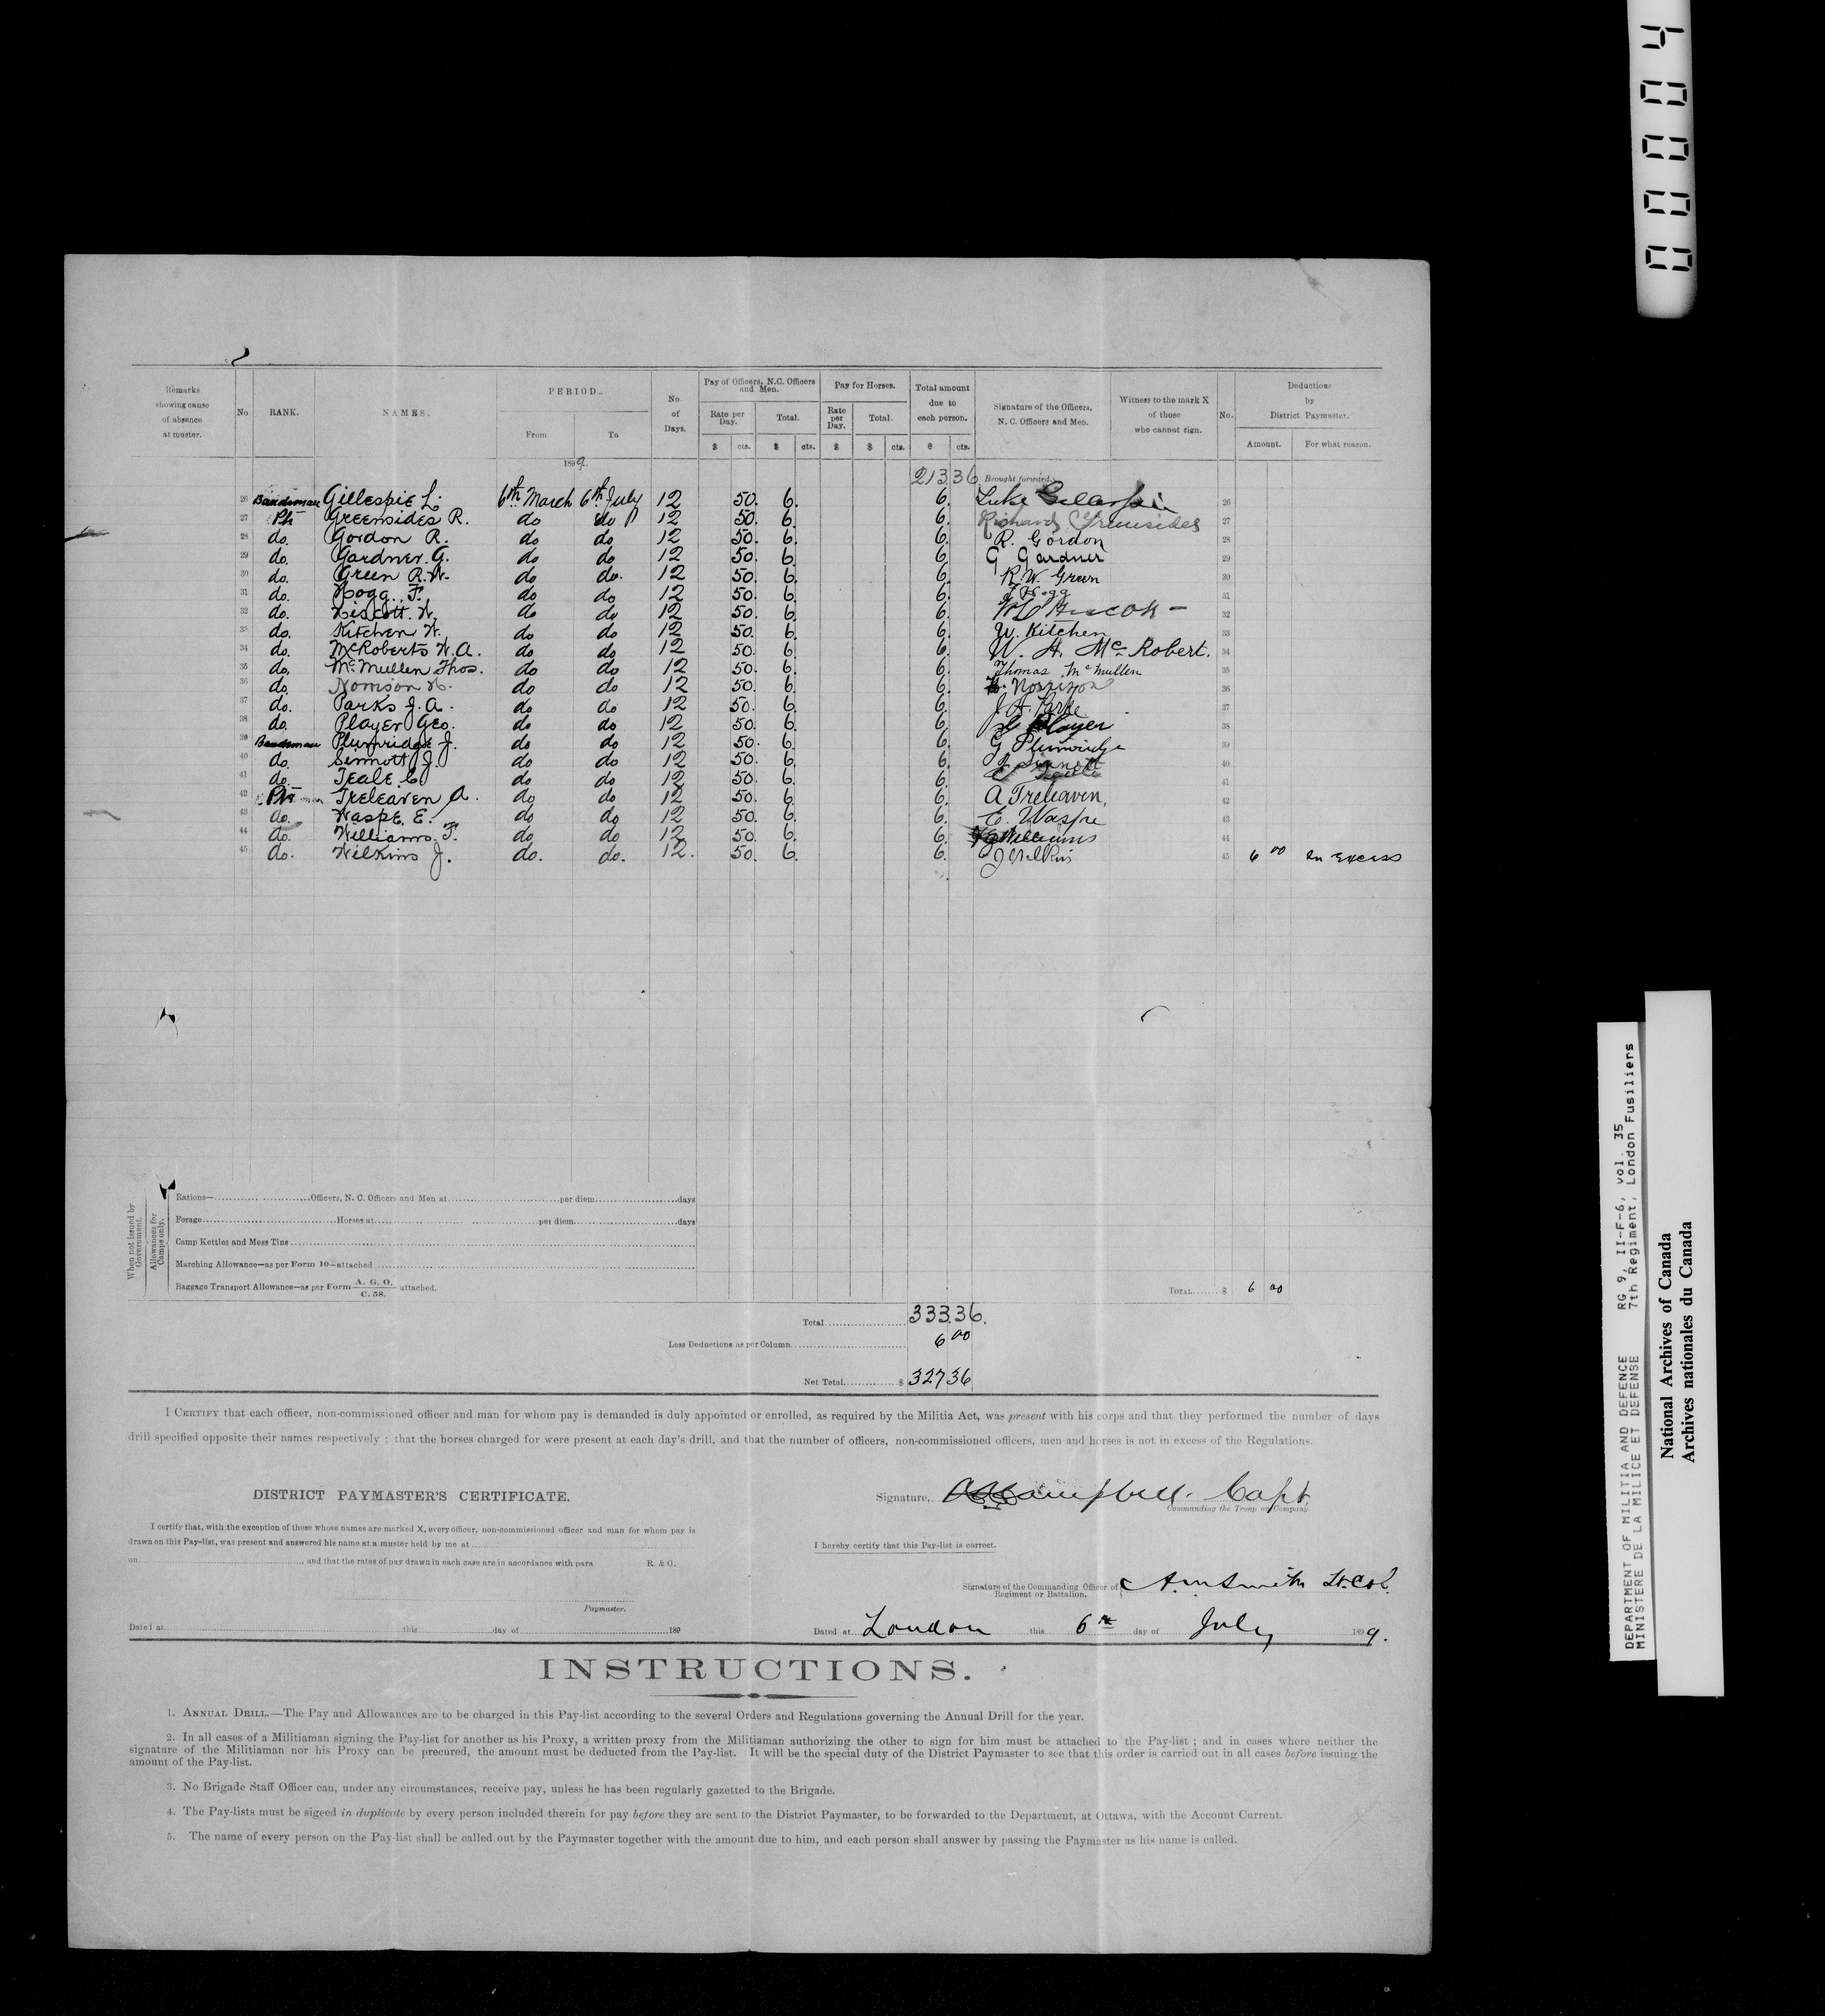 00004
Remarks showing cause of absence at muster. No RANK. NAMES. PERIOD. From To No. of Days. Pay of Officers, N.C. Officers and Men. Rate per Day. Total. Pay for Horses. Rate per Day. Total. Total amount due to each person. Signature of the Officers, N. C. Officers and Men. Witness to the mark X of those who cannot sign. No. Deductions by District Paymaster. Amount. For what reason.
$ cts. $ cts. $ $ cts. $ cts.
1899. 213 36 Brought forward
26 Bandsman Gillespie L. 6th March 6th July 12 50. 6. 6. Luke Gillespie 26
27 Pte Greensides R. do do 12 50. 6. 6. Richard Greensides 27
28 do. Gordon R. do do 12 50. 6. 6. R. Gordon 28
29 do. Gardner. G. do do 12 50. 6. 6. G Gardner 29
30 do. Green R.W. do do. 12 50. 6. 6. R.W. Green 30
31 do. Hogg. F. do do 12 50. 6. 6. F Hogg 31
32 do. Hiscott. W. do do 12 50. 6. 6. 32
33 do. Kitchen W. do do 12 50. 6. 6. W. Kitchen 33
34 do. McRoberts W.A. do do 12 50. 6. 6. W. A. McRobert. 34
35 do. McMullen Thos. do do 12 50. 6. 6. Thomas McMullen 35
36 do. do do 12 50. 6. 6. Morrison 36
37 do. Parks J.A. do do 12 50. 6. 6. J. A. Parke 37
38 do. Player Geo. do do 12 50. 6. 6. G Player 38
39 Bandsman Plumridge J. do do 12 50. 6. 6. G Plumridge 39
40 do. Sinnott J. do do 12 50. 6. 6. J Sinnott 40
41 do. Teale C. do do 12 50. 6. 6. C Teale 41
42 Pte Treleaven A. do do 12 50. 6. 6. A Treleaven, 42
43 do. Waspe. E. do do 12 50. 6. 6. E. Waspe 43
44 do. Williams. F. do do 12 50. 6. 6. Williams 44
45 do. Wilkins J. do. do. 12. 50. 6. 6. J Wilkins 45 6 00 In excess
When not issued by Government.
Allowances for Camps only.
Rations— Officers, N. C. Officers and Men at per diem days
Forage Horses at per diem days
Camp Kettles and Mess Tins
Marching Allowance—as per Form 10—attached
Baggage Transport Allowance—as per Form A. G. O. C. 58. attached.
TOTAL $ 6 00
Total 333.36.
Less Deductions as per Column 6 00
Net Total $ 327 36
I CERTIFY that each officer, non-commissioned officer and man for whom pay is demanded is duly appointed or enrolled, as required by the Militia Act, was present with his corps and that they performed the number of days
drill specified opposite their names respectively ; that the horses charged for were present at each day's drill, and that the number of officers, non-commissioned officers, men and horses is not in excess of the Regulations.
DISTRICT PAYMASTER'S CERTIFICATE.
I certify that, with the exception of those whose names are marked X, every officer, non-commissioned officer and man for whom pay is
drawn on this Pay-list, was present and answered his name at a muster held by me at
on , and that the rates of pay drawn in each case are in accordance with para. R. & O.
Paymaster.
Dated at this day of 189
Signature, Campbell. Capt.
Commanding the Troop or Company.
I hereby certify that this Pay-list is correct.
Signature of the Commanding Officer of Regiment or Battalion. A.M Smith Lt. Col.
Dated at London this 6th day of July 1899.
INSTRUCTIONS.
1. ANNUAL DRILL.—The Pay and Allowances are to be charged in this Pay-list according to the several Orders and Regulations governing the Annual Drill for the year.
2. In all cases of a Militiaman signing the Pay-list for another as his Proxy, a written proxy from the Militiaman authorizing the other to sign for him must be attached to the Pay-list ; and in cases where neither the
signature of the Militiaman nor his Proxy can be precured, the amount must be deducted from the Pay-list. It will be the special duty of the District Paymaster to see that this order is carried out in all cases before issuing the
amount of the Pay-list.
3. No Brigade Staff Officer can, under any circumstances, receive pay, unless he has been regularly gazetted to the Brigade.
4. The Pay-lists must be sigeed in duplicate by every person included therein for pay before they are sent to the District Paymaster, to be forwarded to the Department, at Ottawa, with the Account Current.
5. The name of every person on the Pay-list shall be called out by the Paymaster together with the amount due to him, and each person shall answer by passing the Paymaster as his name is called.
DEPARTMENT OF MILITIA AND DEFENCE RG 9, II-F-6, vol. 35
MINISTERE DE LA MILICE ET DEFENSE 7th Regiment, London Fusiliers
National Archives of Canada
Archives nationales du Canada